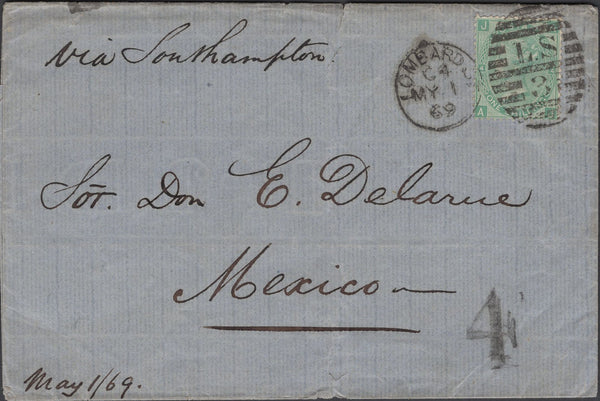 via Southampton.
LOMBARD
C4
MY 1
69
J
A
Sōr. Don E. Delarue
Mexico
4
May 1/69.